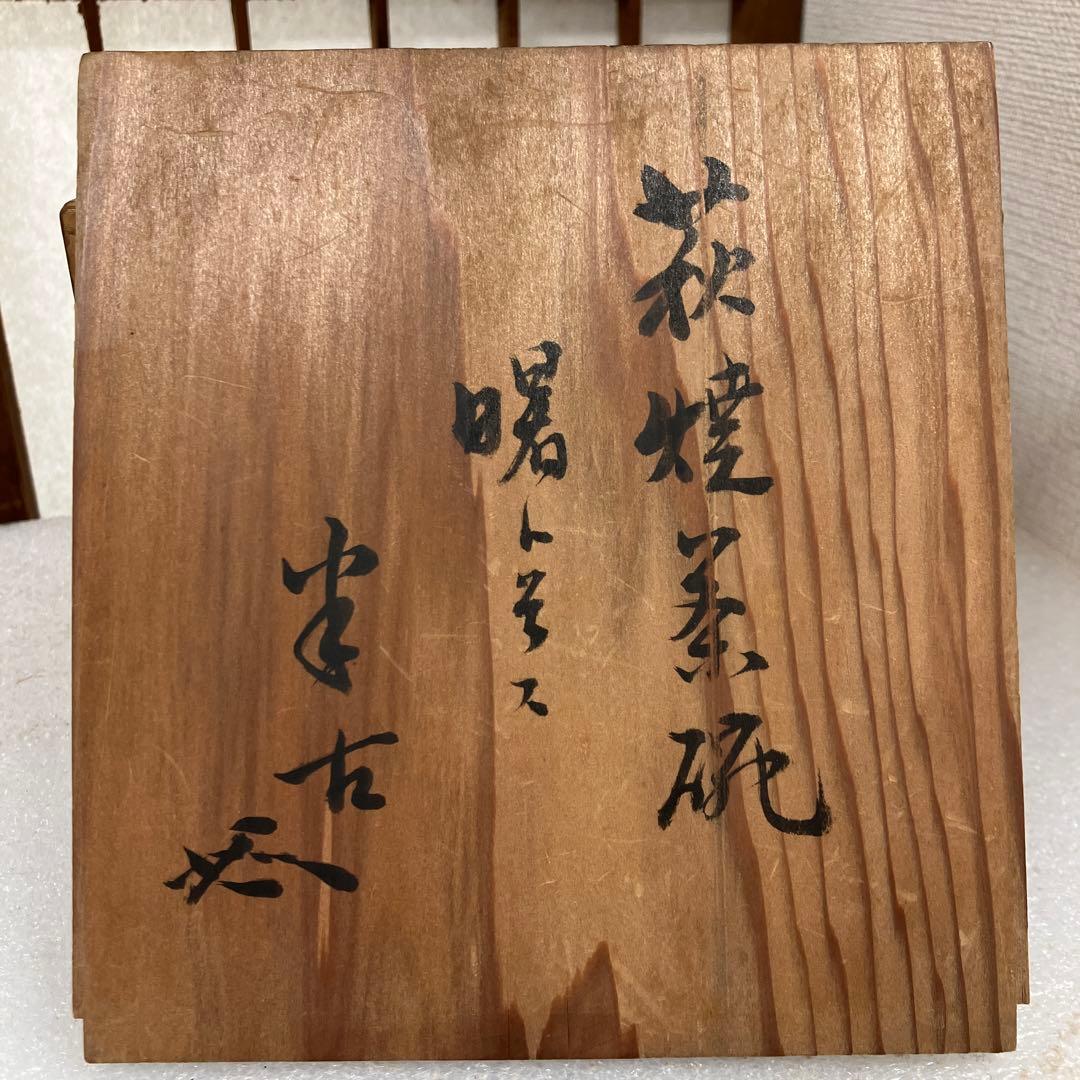 萩焼茶碗
曙ト号ス
半古